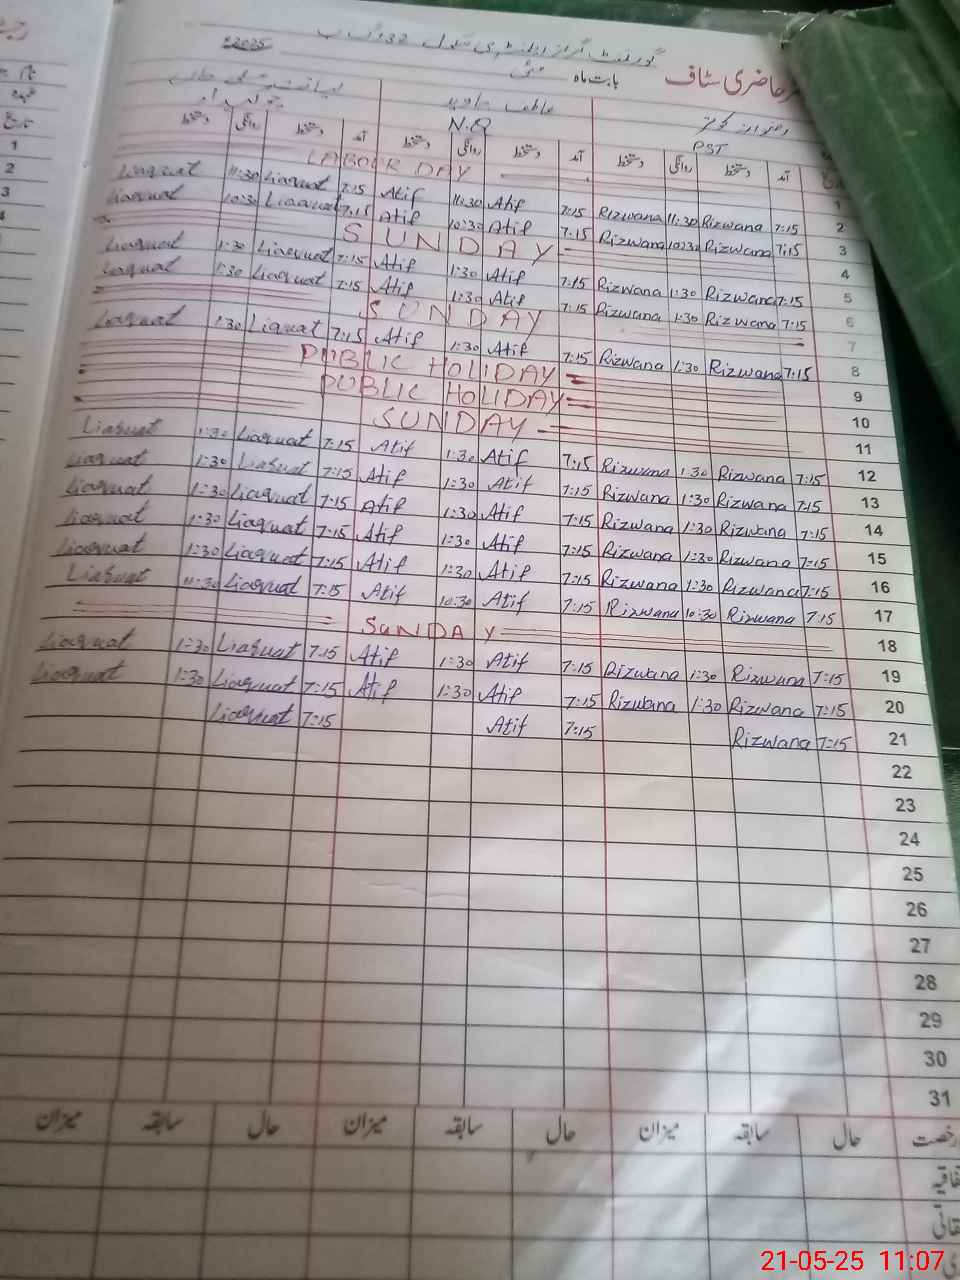 حاضری سٹاف بابت ماہ مئی 2025ء
گورنمنٹ گرلز ایلیمنٹری سکول
PST N.Q
آمد دستخط روانگی دستخط آمد دستخط روانگی دستخط آمد دستخط روانگی دستخط
1 LABOUR DAY
2 7:15 Rizwana 11:30 Rizwana 7:15 Atif 11:30 Atif 7:15 Liaquat 11:30 Liaquat
3 7:15 Rizwana 10:30 Rizwana 7:15 Atif 10:30 Atif 7:15 Liaquat 10:30 Liaquat
4 SUNDAY
5 7:15 Rizwana 1:30 Rizwana 7:15 Atif 1:30 Atif 7:15 Liaquat 1:30 Liaquat
6 7:15 Rizwana 1:30 Rizwana 7:15 Atif 1:30 Atif 7:15 Liaquat 1:30 Liaquat
7 SUNDAY
8 7:15 Rizwana 1:30 Rizwana 7:15 Atif 1:30 Atif 7:15 Liaquat 1:30 Liaquat
9 PUBLIC HOLIDAY
10 PUBLIC HOLIDAY
11 SUNDAY
12 7:15 Rizwana 1:30 Rizwana 7:15 Atif 1:30 Atif 7:15 Liaquat 1:30 Liaquat
13 7:15 Rizwana 1:30 Rizwana 7:15 Atif 1:30 Atif 7:15 Liaquat 1:30 Liaquat
14 7:15 Rizwana 1:30 Rizwana 7:15 Atif 1:30 Atif 7:15 Liaquat 1:30 Liaquat
15 7:15 Rizwana 1:30 Rizwana 7:15 Atif 1:30 Atif 7:15 Liaquat 1:30 Liaquat
16 7:15 Rizwana 1:30 Rizwana 7:15 Atif 1:30 Atif 7:15 Liaquat 1:30 Liaquat
17 7:15 Rizwana 10:30 Rizwana 7:15 Atif 10:30 Atif 7:15 Liaquat 11:30 Liaquat
18 SUNDAY
19 7:15 Rizwana 1:30 Rizwana 7:15 Atif 1:30 Atif 7:15 Liaquat 1:30 Liaquat
20 7:15 Rizwana 1:30 Rizwana 7:15 Atif 1:30 Atif 7:15 Liaquat 1:30 Liaquat
21 7:15 Rizwana 7:15 Atif 7:15 Liaquat
22
23
24
25
26
27
28
29
30
31
رخصت حال سابقہ میزان حال سابقہ میزان حال سابقہ میزان
21-05-25 11:07